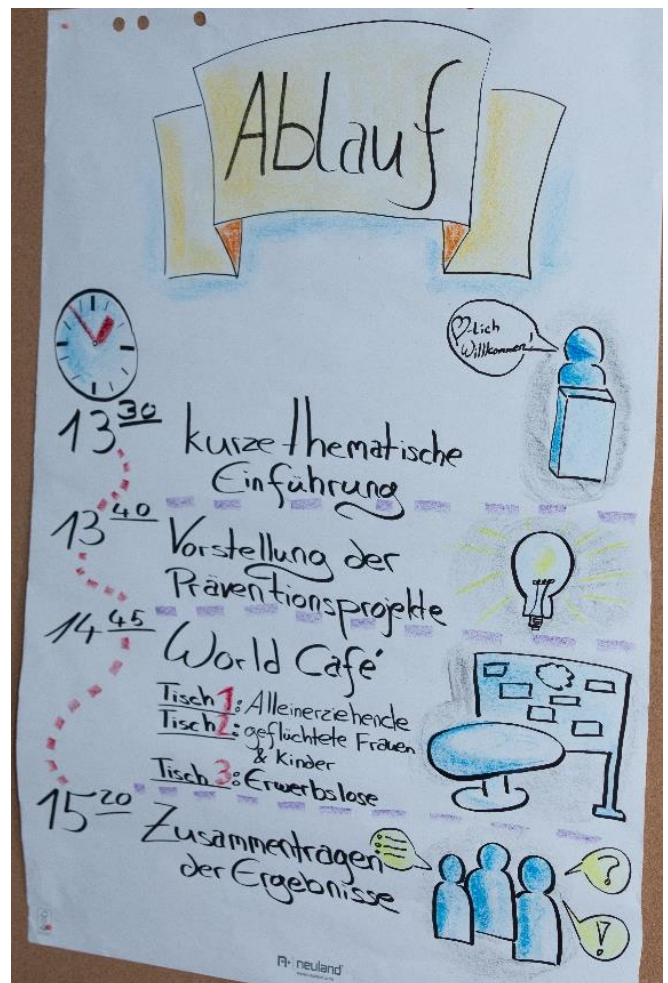 Ablauf
♡-lich
Willkommen!
13 30 kurze thematische
Einführung
13 40 Vorstellung der
Präventionsprojekte
14 45 World Café
Tisch 1: Alleinerziehende
Tisch 2: geflüchtete Frauen
& Kinder
Tisch 3: Erwerbslose
15 20 Zusammentragen
der Ergebnisse
?
!
neuland